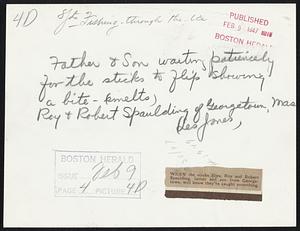 4D
Fishing - through the ice
PUBLISHED
FEB 9 1947
BOSTON HERALD
Father & Son waiting patiently
for the sticks to flip showing
a bite - smelts,
Roy & Robert Spaulding of Georgetown, Mass
Des Jones,
BOSTON HERALD
ISSUE Feb 9
PAGE 4 PICTURE 4D
WHEN the sticks flips, Roy and Robert
Spaulding, father and son from George-
town, will know they've caught something.